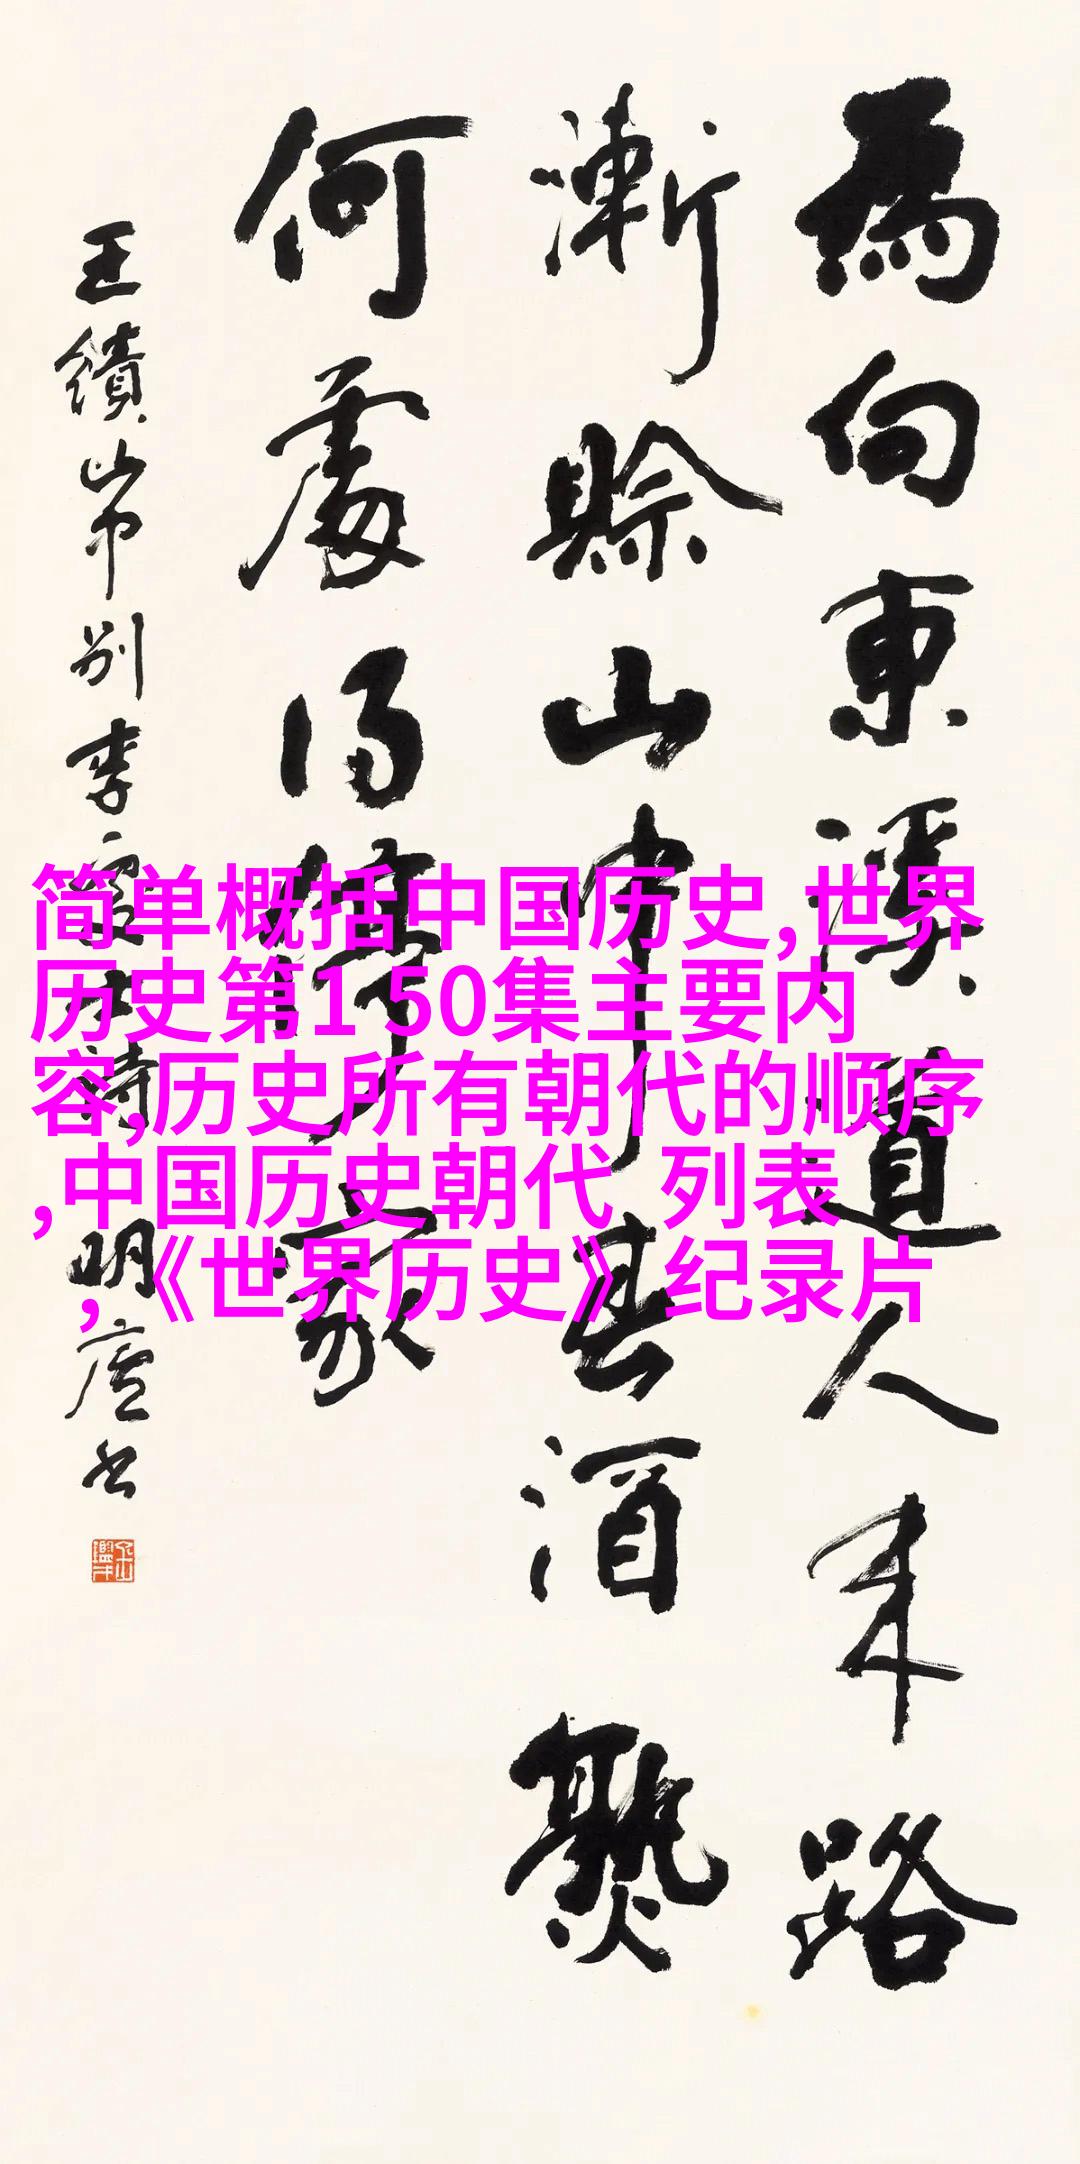 為向東溪道人来路
漸賒山中春酒熟
何處得停家
王績山中別李處士詩明廬書
简单概括中国历史,世界
历史第1 50集主要内
容,历史所有朝代的顺序
,中国历史朝代 列表
,《世界历史》纪录片